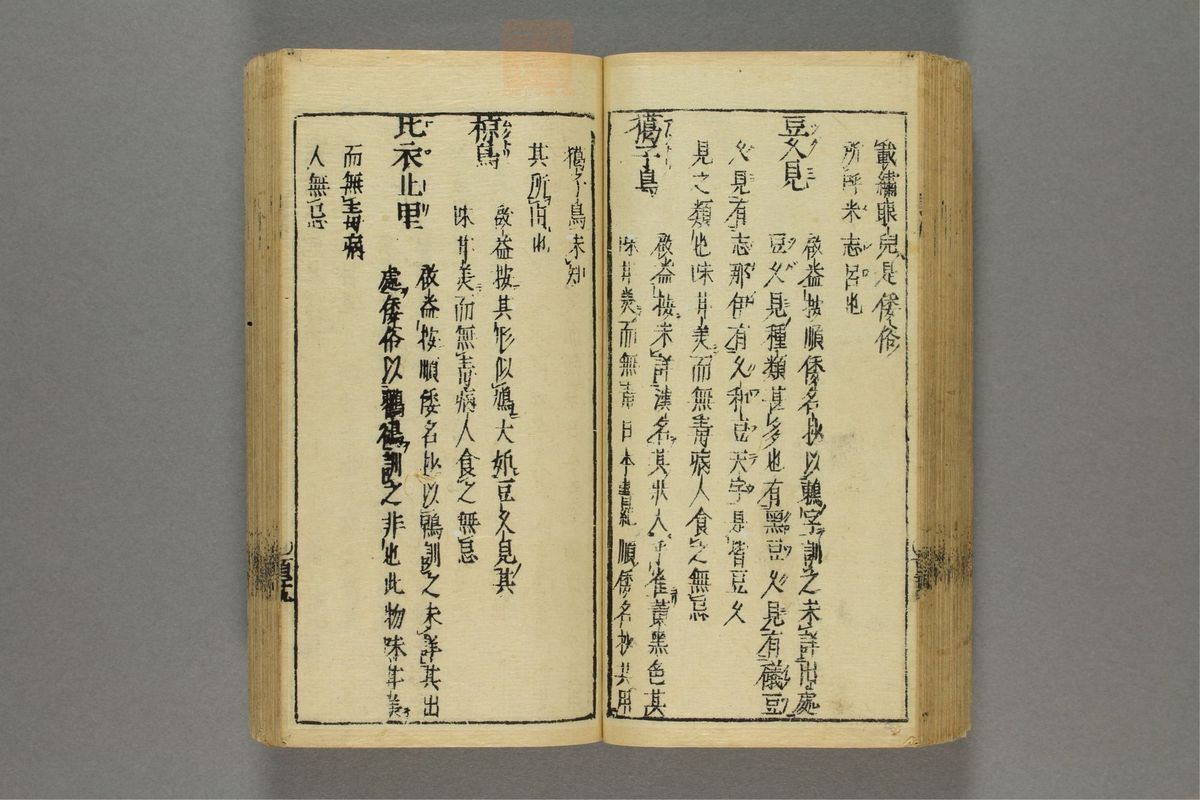 載繡眼兒是倭俗
所呼米志呂也
豆久見
啟益按順倭名抄以鶫字訓之未詳出處
豆久見種類甚多也有黑豆久見有礒豆
久見有志那伊有久和豆天字是皆豆久
見之類也味甘美而無毒病人食之無忌
獦子鳥
啟益按未詳漢名其狀大乎雀黃黑色其
味甘美而無毒日本書紀順倭名抄共用
獦子鳥未知
其所由也
椋鳥
啟益按其形似鳩大如豆久見其
味甘美而無毒病人食之無忌
比衣止里
啟益按順倭名抄以鵯訓之未詳其出
處倭俗以訓之非也此物味甘美
而無毒病
人無忌